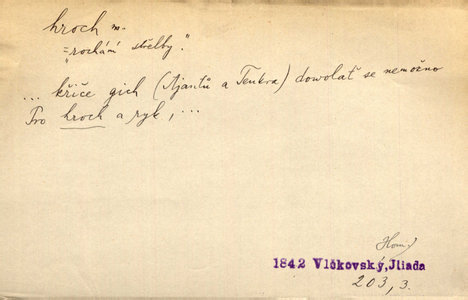 hroch m.
= „rochání střelby."
... křiče gich (Ajantů a Teukra) dowolať se nemožno
Pro hroch a ryk, ...
1842 Vlčkovský, Jliada
203, 3.